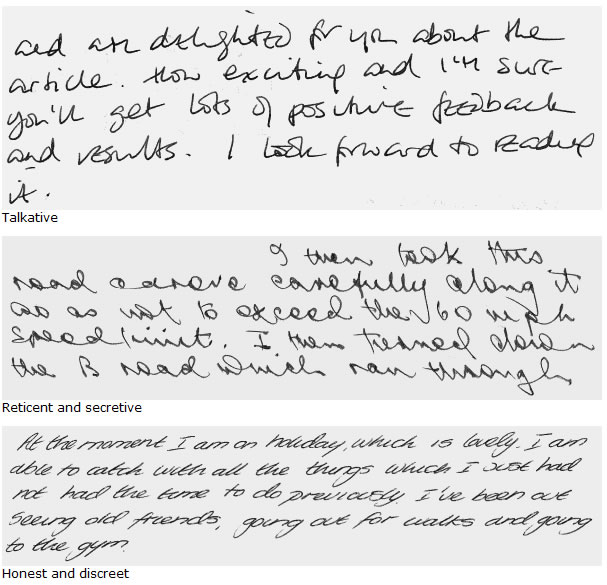 and am delighted for you about the
article. How exciting and I'm sure
you'll get lots of positive feedback
and results. I look forward to reading
it.
Talkative
I then took this
road & drove carefully along it
so as not to exceed the 60 mph
speed limit. I then turned down
the B road which ran through
Reticent and secretive
At the moment I am on holiday, which is lovely. I am
able to catch with all the things which I just had
not had the time to do previously. I've been out
seeing old friends, going out for walks and going
to the gym.
Honest and discreet